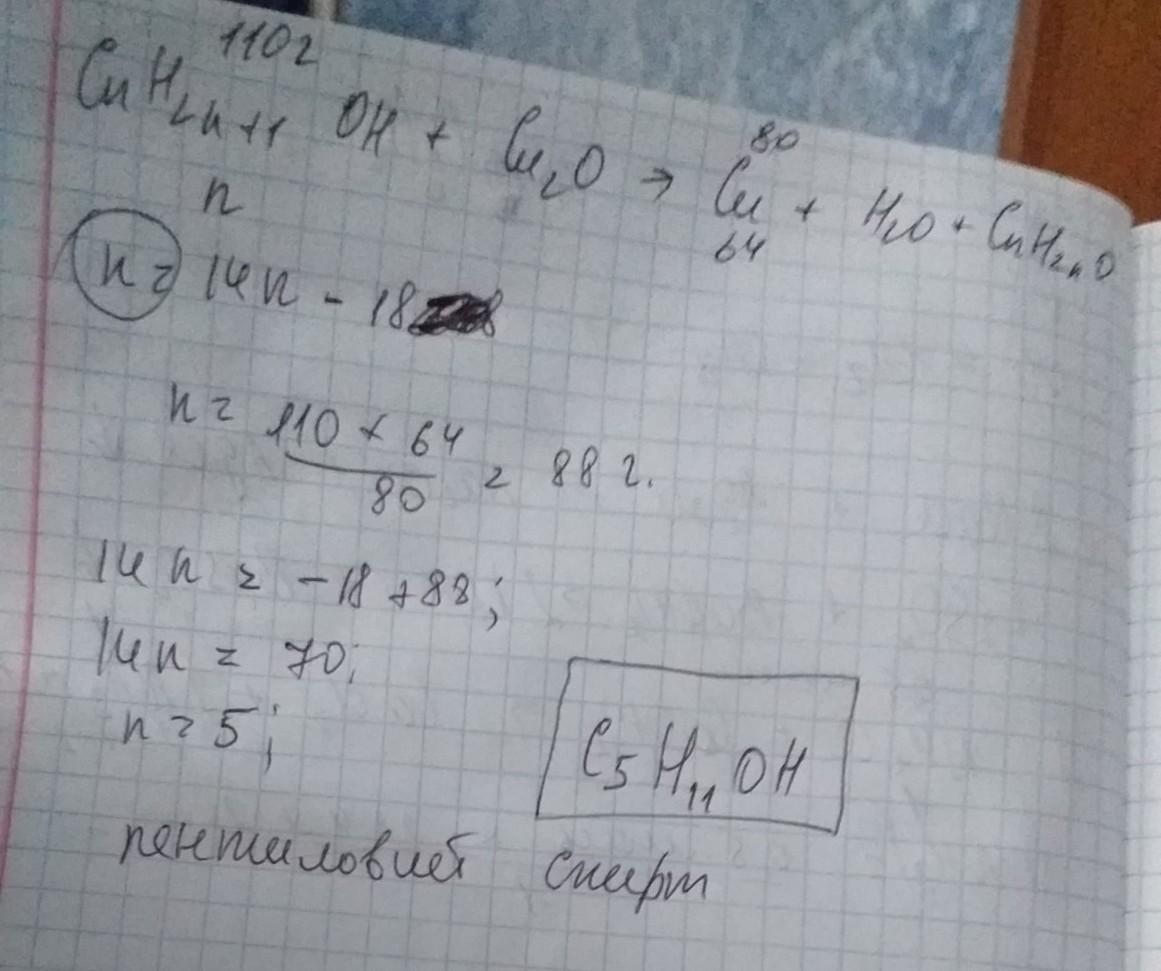 110г
CnH2n+1 OH + Cu2O → Cu + H2O + CnH2nO
80
n
64
n = 14n - 18
n = 110 × 64 / 80 = 88 г.
14n = -18 + 88;
14n = 70;
n = 5;
C5H11OH
пентиловией спирт